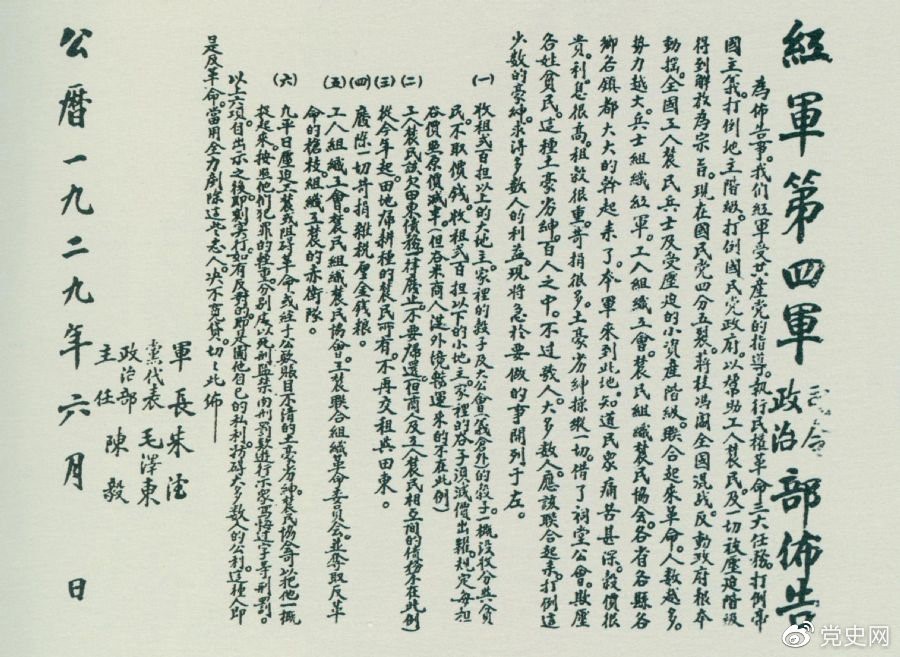 紅軍第四軍司令政治部佈告
為佈告事。我們紅軍受共產党的指導。執行民權革命三大任務。打倒帝
國主義。打倒地主階級。打倒國民党政府。以幫助工人農民及一切被壓迫階級
得到解放為宗旨。現在國民党四分五裂。蔣桂馮閻全國混战。反動政府根本
動搖。全國工人農民兵士及受壓迫的小資產階級。聯合起來革命。人數越多。
勢力越大。兵士組織紅軍。工人組織工會。農民組織農民協会。各省各縣各
鄉各鎮都大大的幹起來了。本軍來到此地。知道民眾痛苦甚深。穀價很
貴。利息很高。租穀很重。苛捐很多。土豪劣紳操縱一切。借了祠堂公會。欺壓
各姓貧民。這種土豪劣紳。百人之中。不過数人。大多数人。應該联合起來。打倒這
少数的豪紳。求得多数人的利益。現將急於要做的事開列于左。
(一)收租弍百担以上的大地主。家裡的穀子及大公會(義倉外)的穀子。一概沒收分與貧
民。不取價錢。收租弍百担以下的小地主。家裡的谷子須減價出糶。規定每担
谷價照原價減半。(但谷米商人從外境販運來的不在此例)
(二)工人農民該欠田東債務一律廢止。不要歸還(但商人及工人農民相互間的債務不在此例)
(三)從今年起。田地歸耕種的農民所有。不再交租與田東。
(四)廢除一切苛捐雜稅厘金錢粮。
(五)工人組織工會。農民組織農民協會。工農聯合組織革命委員会。並奪取反革
命的槍枝組織工農的赤衛隊。
(六)凡平日壓迫工農或阻碍革命。或經手公款賬目不清的土豪劣紳。農民協會可以把他一概
捉起來。按照他們犯罪的輕重。分别處以死刑監禁肉刑罰款遊行示眾寫悔过字等刑罰。
以上六項自出示之後。即刻实行。如有反對的。即是圖他自己的私利。妨碍大多数人的公利。這種人即
是反革命。當用全力剷除這些惡人。决不寬貸。切切此佈
軍長朱德
黨代表毛澤東
政治部主任陳毅
公曆一九二九年六月 日
党史网